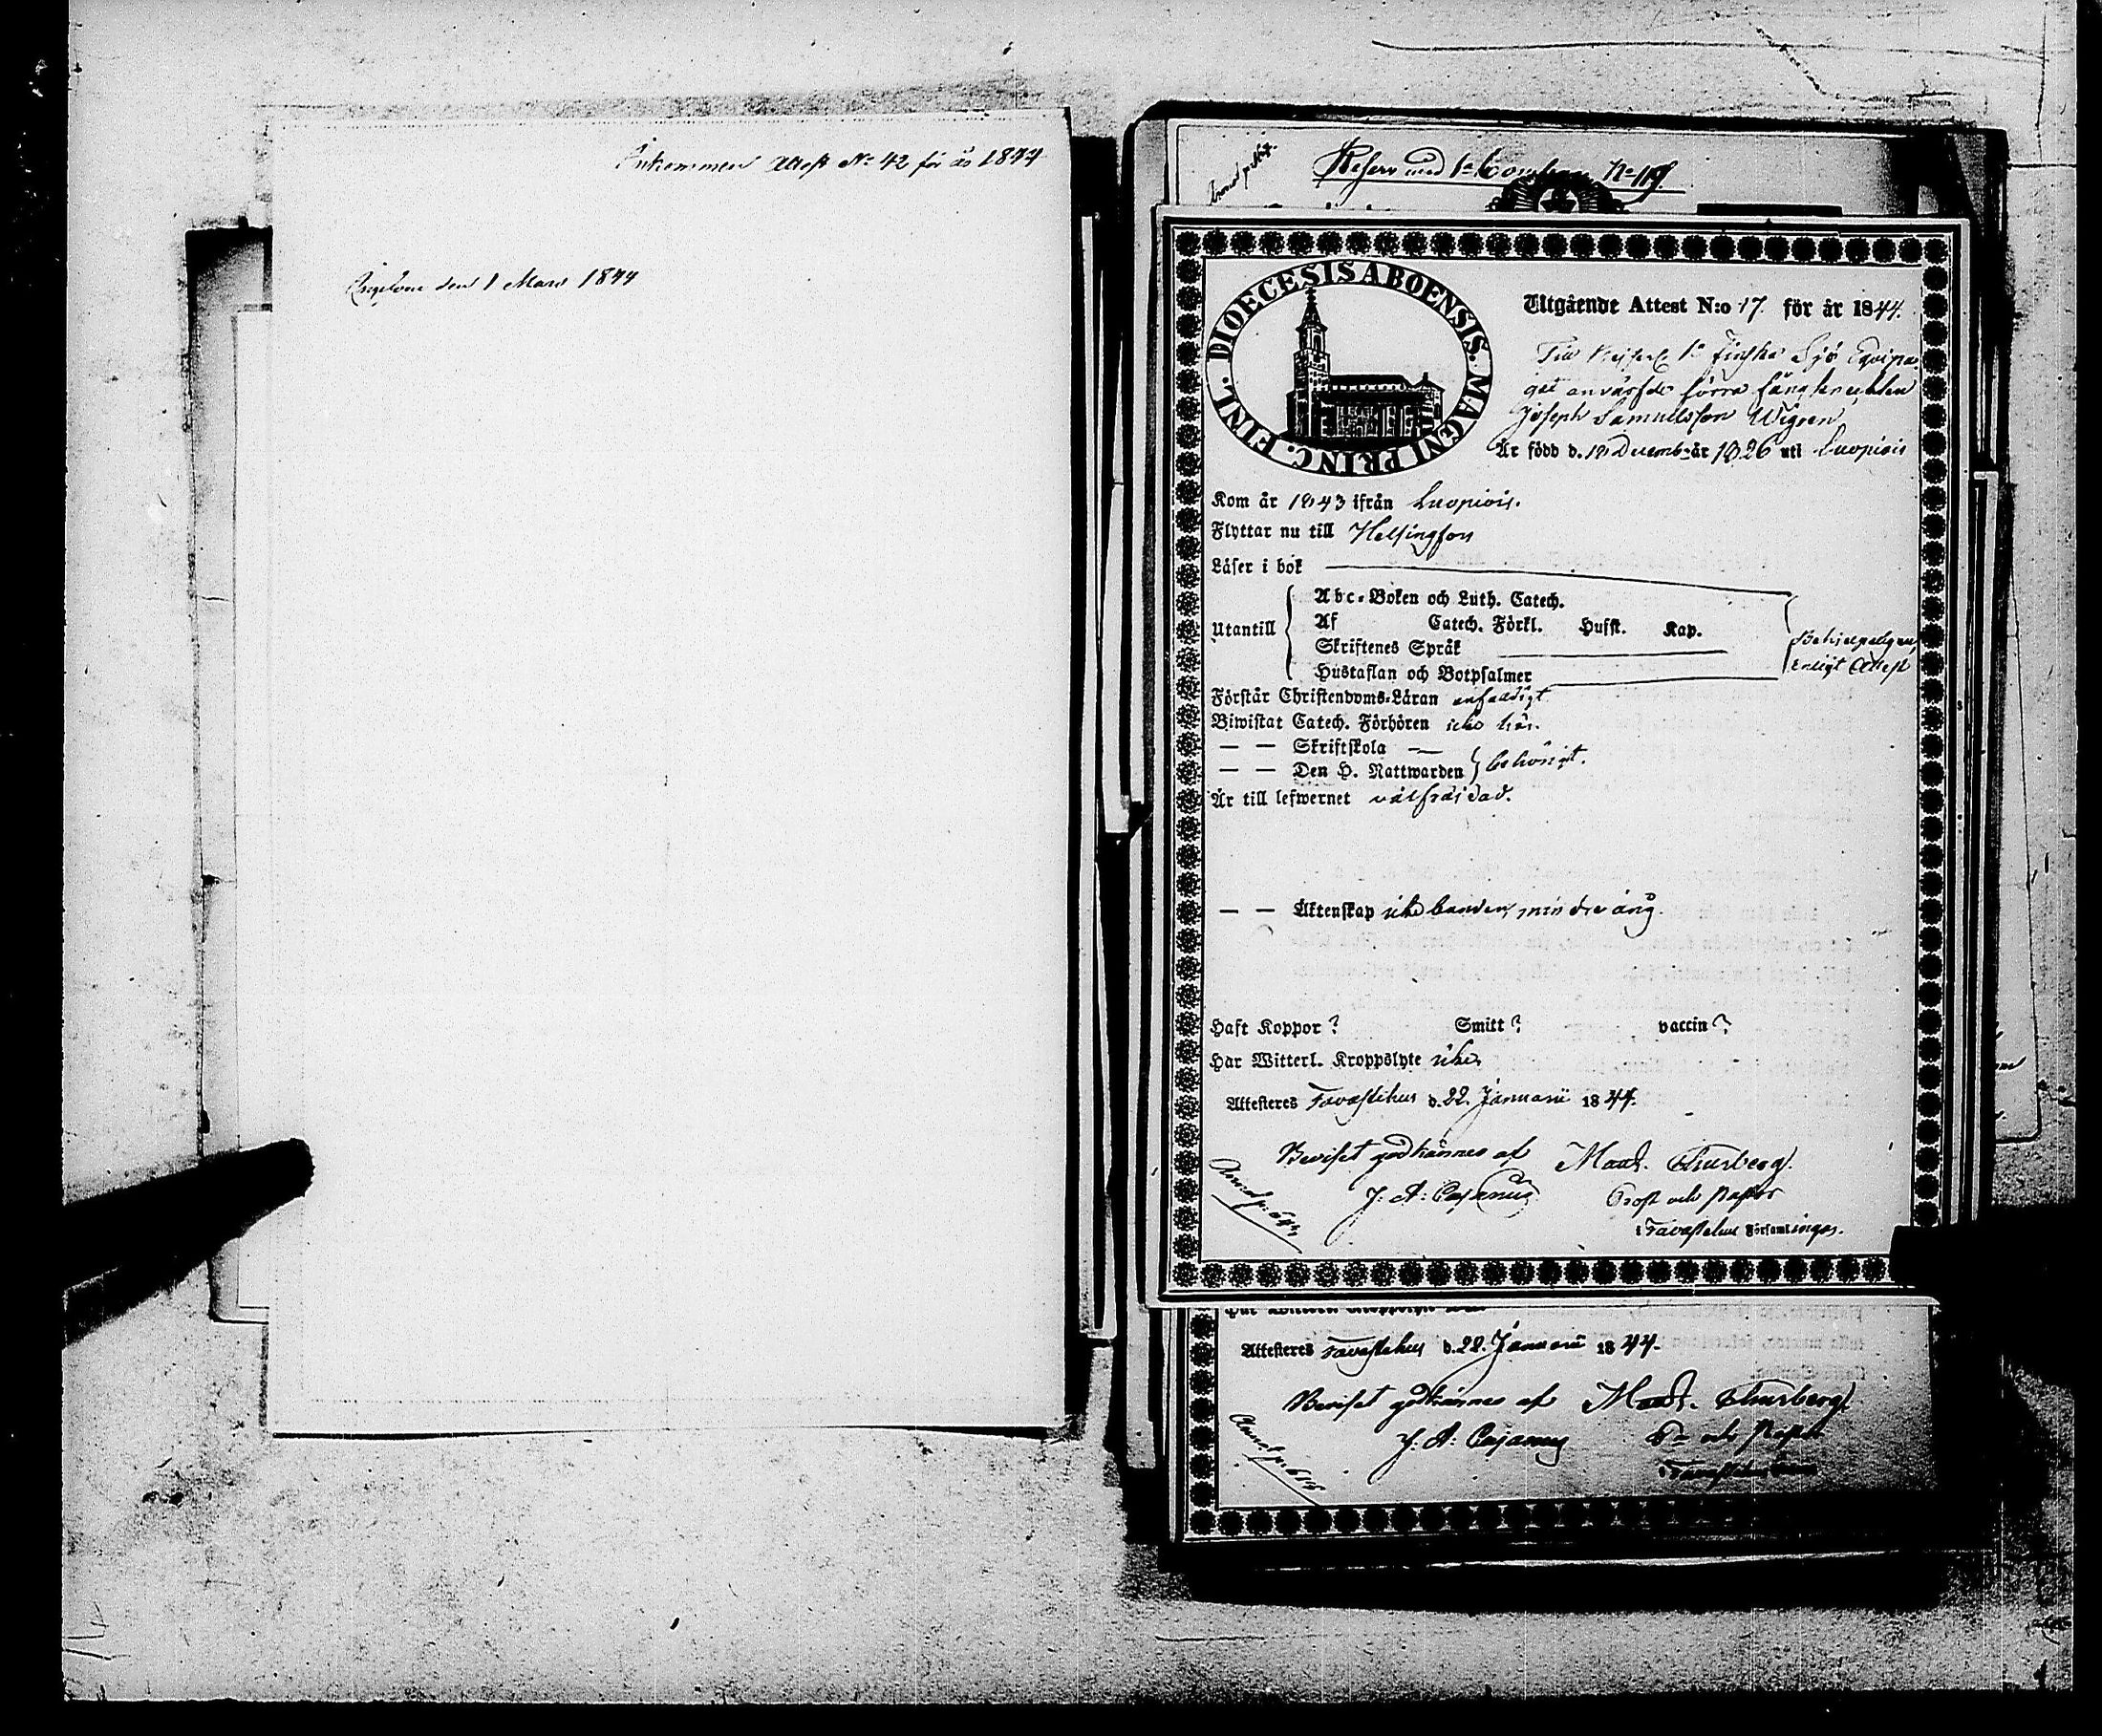 Inkommen Attest No 42 för år 1844
Ingifven den 1 Mars 1844
DIOECESIS ABOENSIS. MAGNI PRINC. FINL.
Utgående Attest N:o 17. för år 1844.
Till Kejserl. 1a Finska Sjö Equipa-
get anvärfde förra fångknekten
Joseph Samuelsson Wigren
Är född d. 18 Decemb. år 1826 uti Luopiois
Kom år 1843 ifrån Luopiois.
Flyttar nu till Helsingfors
Läser i bok
Utantill
Abc-Boken och Luth. Catech.
Af Catech. Förkl. Husst. Kap.
Skriftenes Språk
Hustaflan och Botpsalmer
enligt Attest
Förstår Christendoms-Läran enfaldigt
Biwistat Catech. Förhören icke här.
— — Skriftskola —
— — Den H. Nattwarden } behörigt.
Är till lefwernet välfräjdad.
— — Äktenskap icke bunden, minderårig.
Haft Koppor? Smitt? vaccin?
Har Witterl. Kroppslyte icke
Attesteres Tavastehus d. 22. Januarii 1844.
Beviset godkännes af Math. Thurberg.
J: A: Cajanus Prost och Pastor
i Tavastehus Församlingar.
Attesteres Tavastehus d. 22. Januarii 1844.
Beviset godkännes af Math. Thurberg
J: A: Cajanus Pr och Pastor